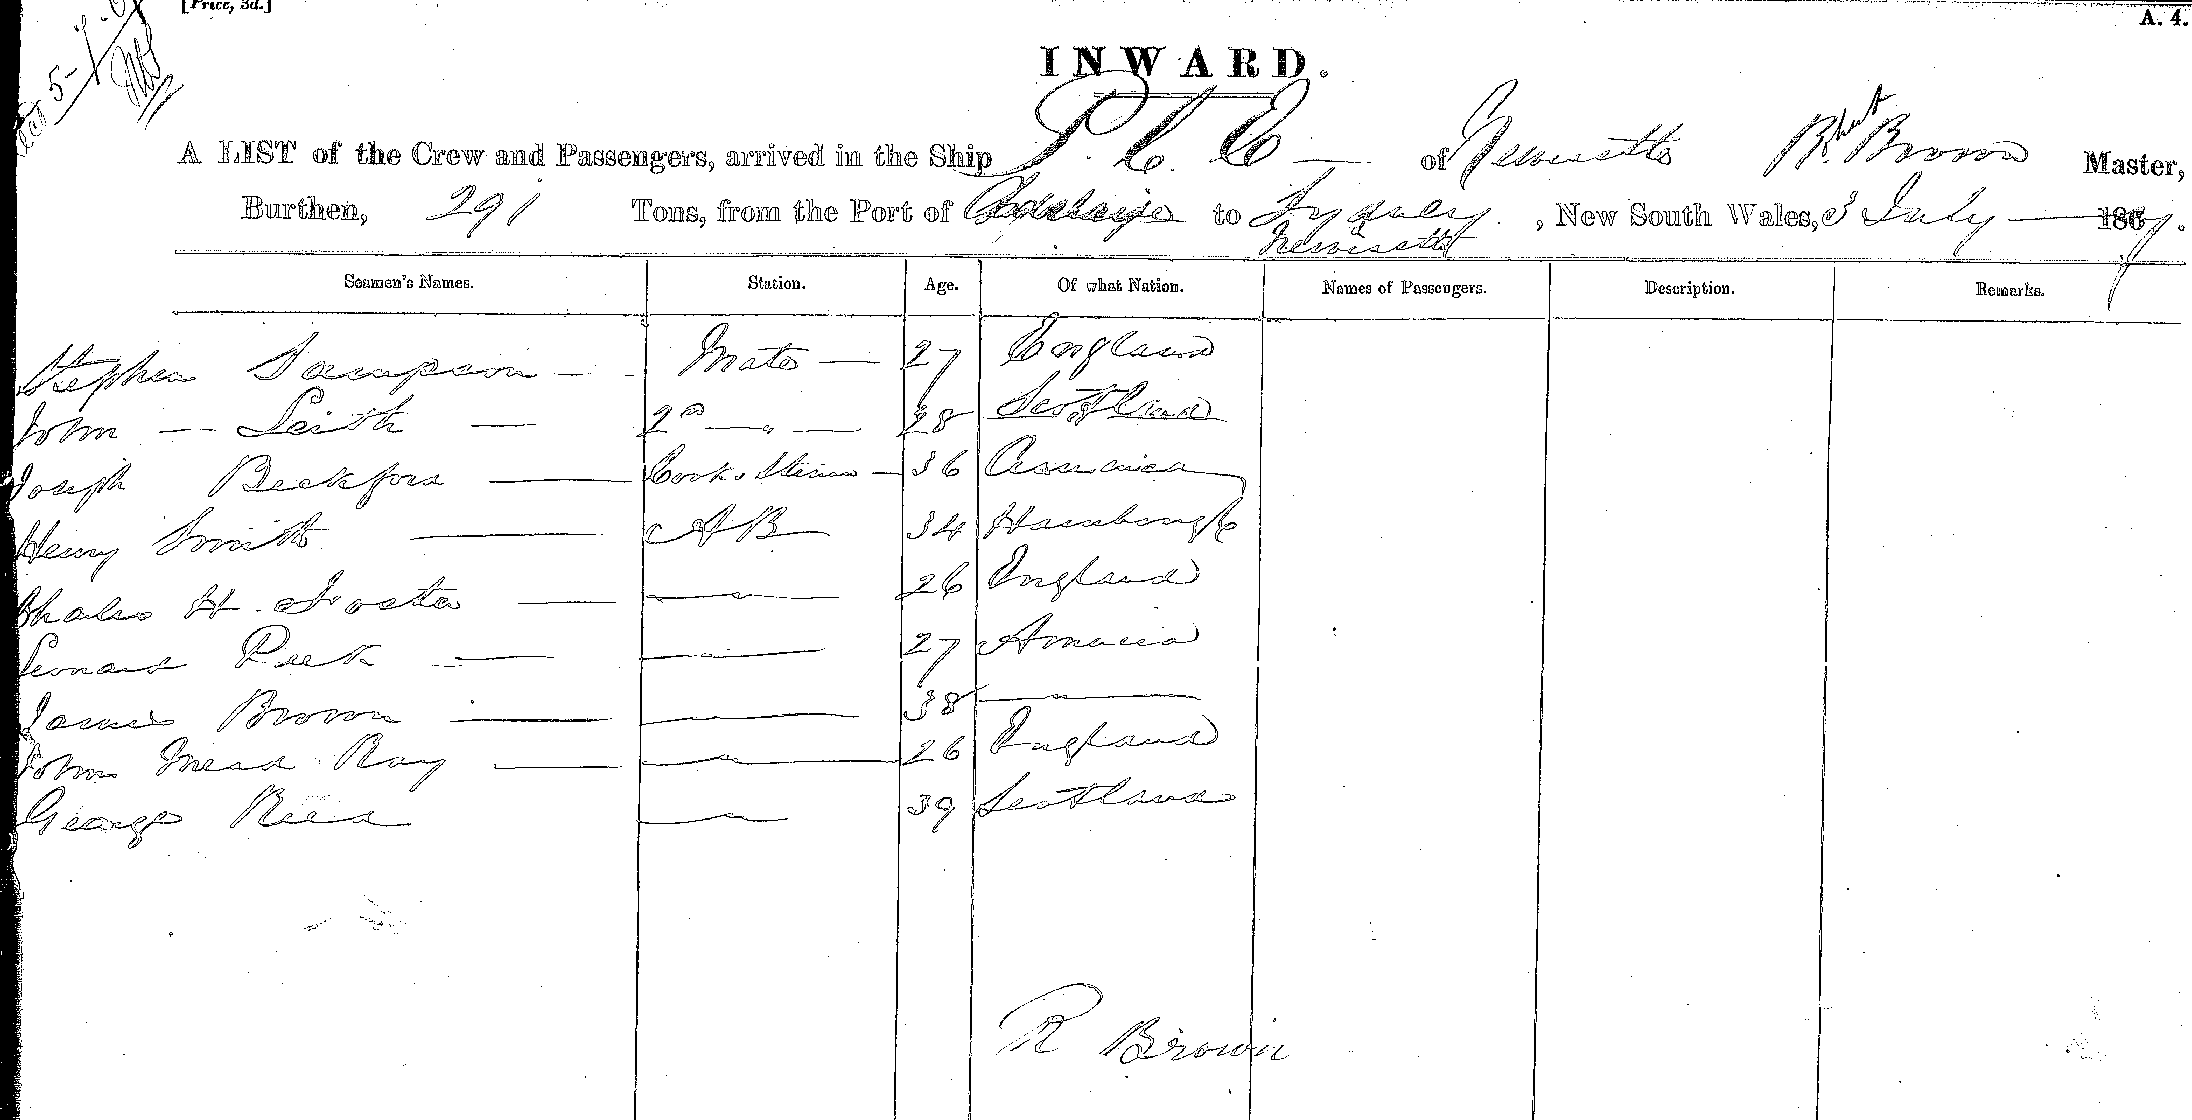 [Price, 3d.]
A. 4.
INWARD.
A LIST of the Crew and Passengers, arrived in the Ship P. C. E — of Newcastle Rbert Brown Master,
Burthen, 291 Tons, from the Port of Adelaide to Sydney , New South Wales, 3 July 1867.
Newcastle
Seamen's Names. Station. Age. Of what Nation. Names of Passengers. Description. Remarks.
Stephen Sampson — Mate — 27 England
John — Leith — 2nd — " — 28 Scotland
Joseph Beckford — Cook & Steward — 36 America
Henry Smith — AB 34 Hamburgh
Charles H. Foster — " — 26 England
Leonard Peek — " — 27 America
James Brown — " — 38 — " —
John Mead Ray — " — 26 England
George Reed — " — 39 Scotland
R Brown